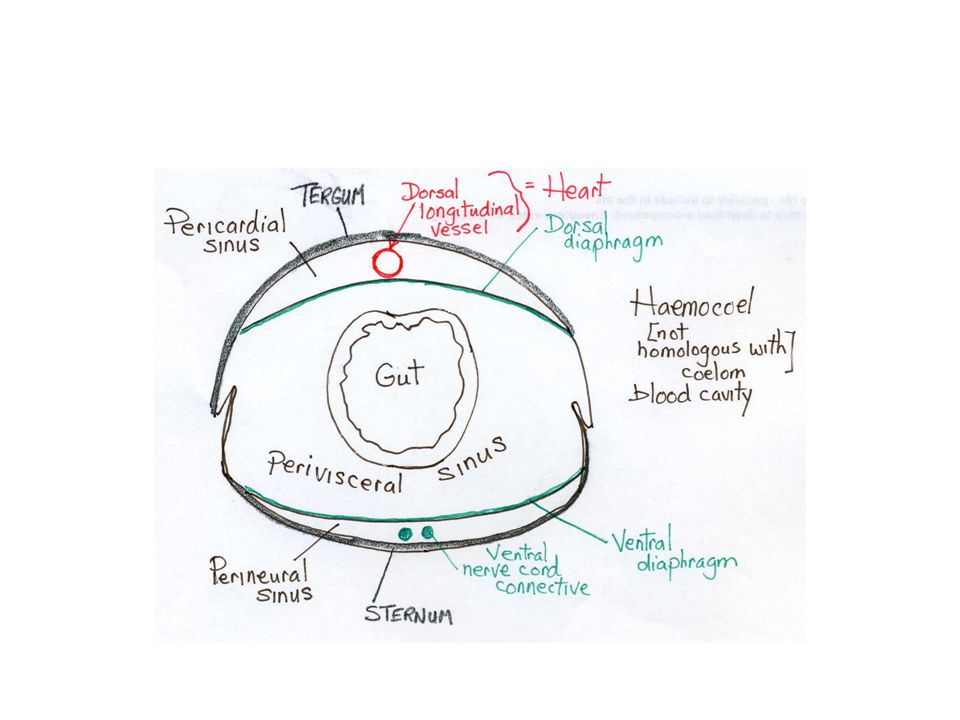 TERGUM
Dorsal
longitudinal
vessel
= Heart
Pericardial
sinus
Dorsal
diaphragm
Haemocoel
[not
homologous with]
coelom
blood cavity
Gut
Perivisceral sinus
Perineural
sinus
Ventral
nerve cord
connective
Ventral
diaphragm
STERNUM